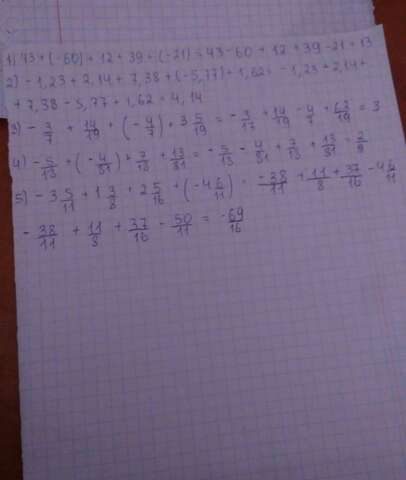 1) 43+(-60)+12+39+(-21)=43-60+12+39-21=13
2) -1,23+2,14+7,38+(-5,77)+1,62= -1,23+2,14+
+7,38-5,77+1,62=4,14
3) -3/7 + 14/19 + (-4/7) + 3 5/19 = -3/17 + 14/19 - 4/7 + 62/19 = 3
4) -5/13 + (-4/81) + 7/13 + 13/81 = -5/13 - 4/81 + 7/13 + 13/81 = 2/9
5) -3 5/11 + 1 3/8 + 2 5/16 + (-4 6/11) = -38/11 + 11/8 + 37/16 - 4 6/11
-38/11 + 11/8 + 37/16 - 50/11 = -69/16